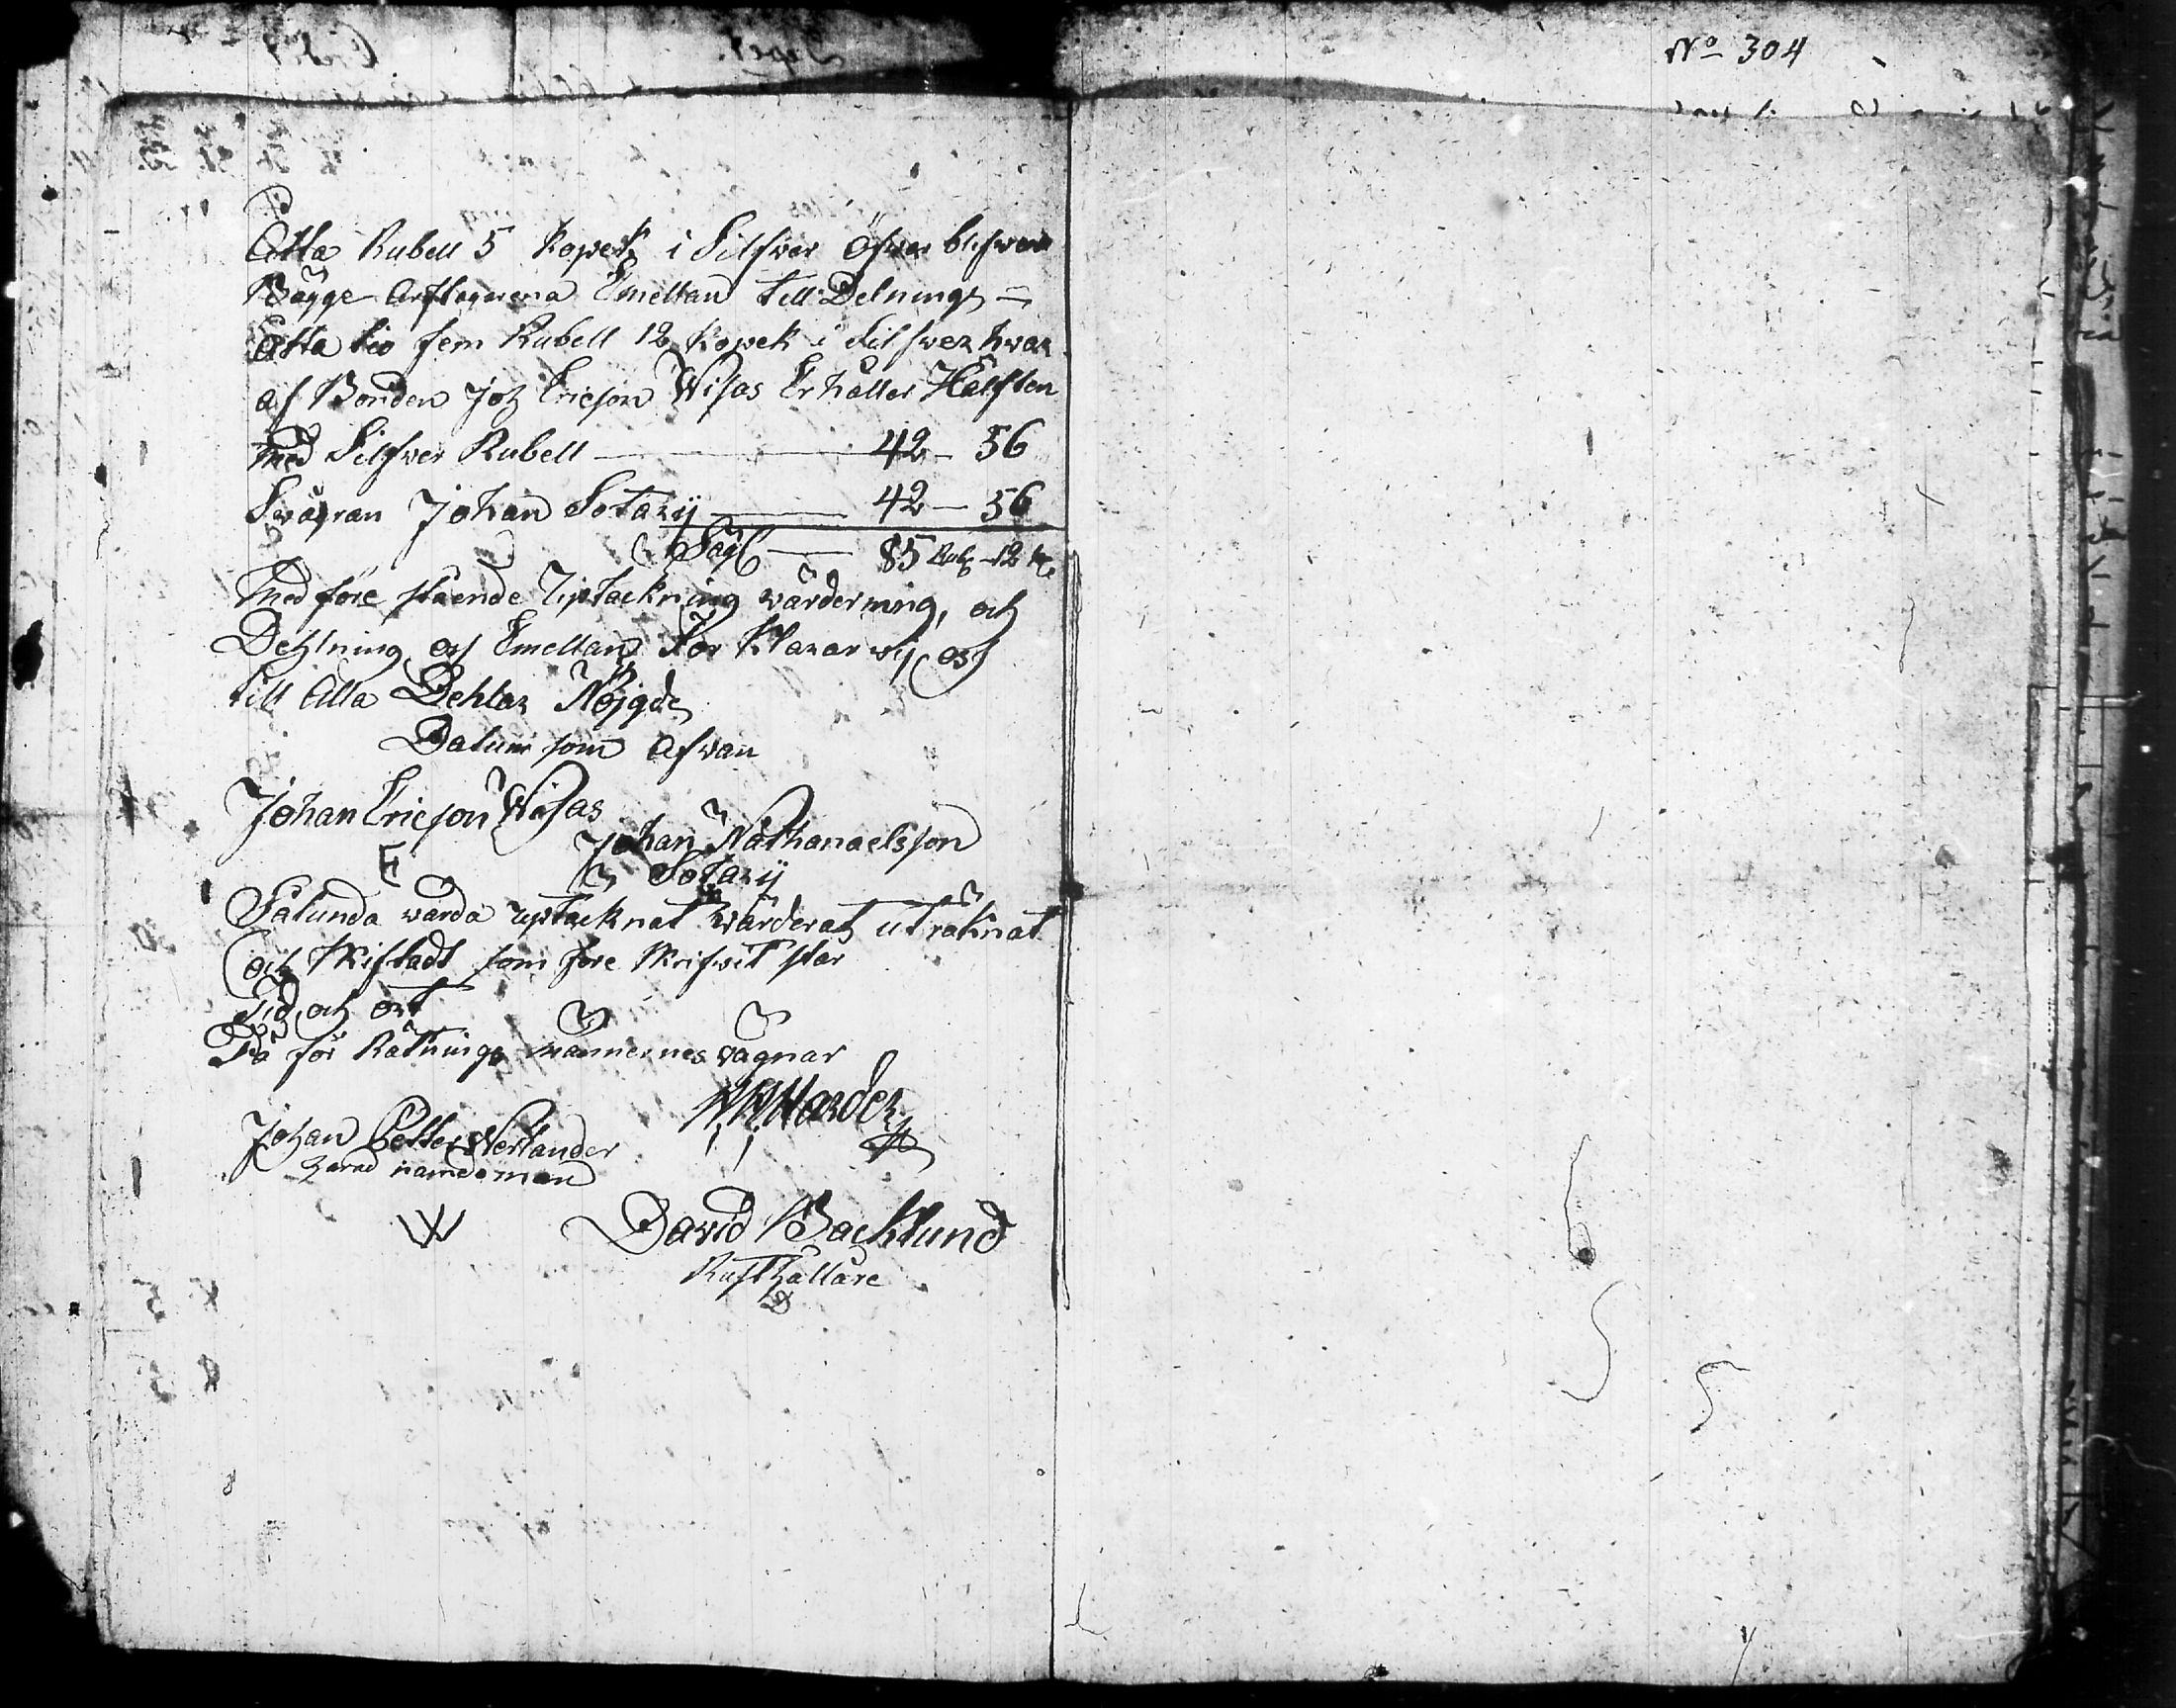 No 304
Åtta Rubell 5 Kopek i Silfwer Öfwer blifwer
Bägge Arftagarena Emellan till Delnings =
Åtta tio fem Rubell 12 Kopek i Silfwer hwar
af Bonden Joh Ericson Wisas Erhåller Hälften
med Silfwer Rubell — 42 — 56
Swågran Johan Sotary — 42 — 56
Säg — 85 Rub — 12 K
Med före stående Uptäckning wärdering, och
Dehlning oss Emellan För Klarar wij oss
till Alla Dehlar Nöjgde
Datum som Afwan
Johan Ericson Wisas
Johan Nathanaelsson
E
Sotarij
Sålunda warda uptäcknat wärderat uträknat
och Skiftadt som före Skrifwit står
Tid och ort
På för Rätnings männernes vägnar
Harder
Johan Petter Westander
härad nämdeman
W
David Backlund
Rusthållare